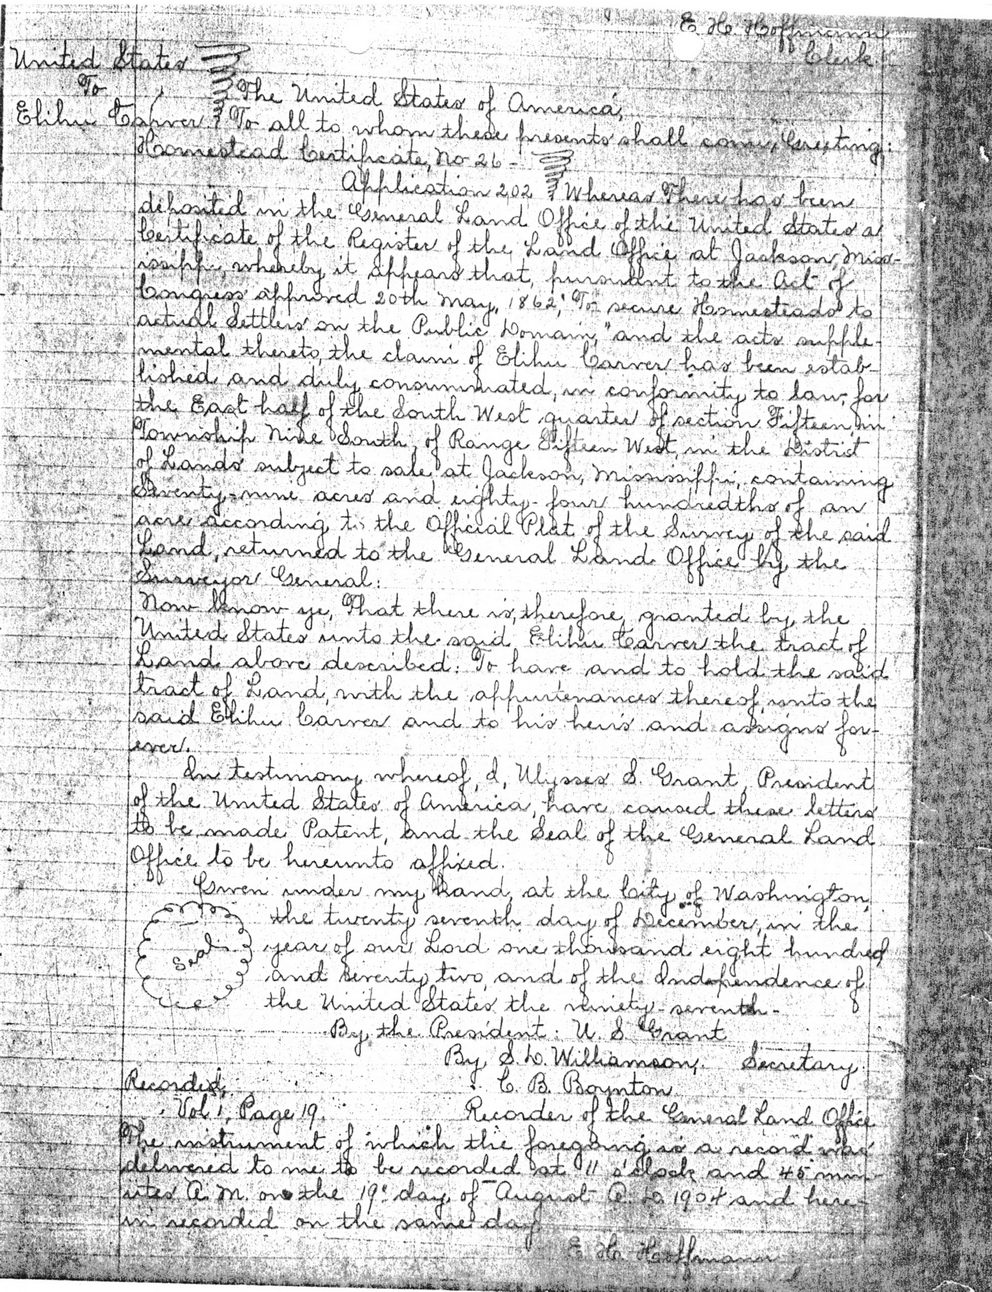 E H Hoffmann
Clerk
United States
To
Elihu Carver
The United States of America,
To all to whom these presents shall come, Greeting:
Homestead Certificate, No 26 -
Application 202 Whereas There has been
deposited in the General Land Office of the United States a
Certificate of the Register of the Land Office at Jackson, Miss-
issippi, whereby it appears that, pursuant to the Act of
Congress approved 20th May, 1862, "To secure Homesteads to
actual Settlers on the Public Domain," and the acts supple-
mental thereto, the claim of Elihu Carver has been estab-
lished and duly consummated, in conformity to law, for
the East half of the South West quarter of section Fifteen, in
Township Nine South, of Range Fifteen West, in the District
of Lands subject to sale, at Jackson, Mississippi, containing
Seventy-nine acres and eighty-four hundredths of an
acre according to the Official Plat of the Survey of the said
Land, returned to the General Land Office by the
Surveyor General:
Now know ye, That there is, therefore, granted by the
United States unto the said Elihu Carver the tract of
Land above described: To have and to hold the said
tract of Land, with the appurtenances thereof, unto the
said Elihu Carver and to his heirs and assigns for-
ever.
In testimony whereof, I, Ulysses S. Grant, President
of the United States of America, have caused these letters
to be made Patent, and the Seal of the General Land
Office to be hereunto affixed.
Given under my hand, at the City of Washington,
the twenty seventh day of December, in the
year of our Lord one thousand eight hundred
Seal
and seventy two, and of the Independence of
the United States the ninety-seventh-
By the President: U. S. Grant
By S. D. Williamson, Secretary
Recorded, C. B. Boynton
Vol 1, Page 19. Recorder of the General Land Office
The instrument of which the foregoing is a record was
delivered to me to be recorded at 11 o'clock and 45 min-
utes A. M. on the 19" day of August A. D. 1904 and here-
in recorded on the same day
E H. Hoffmann